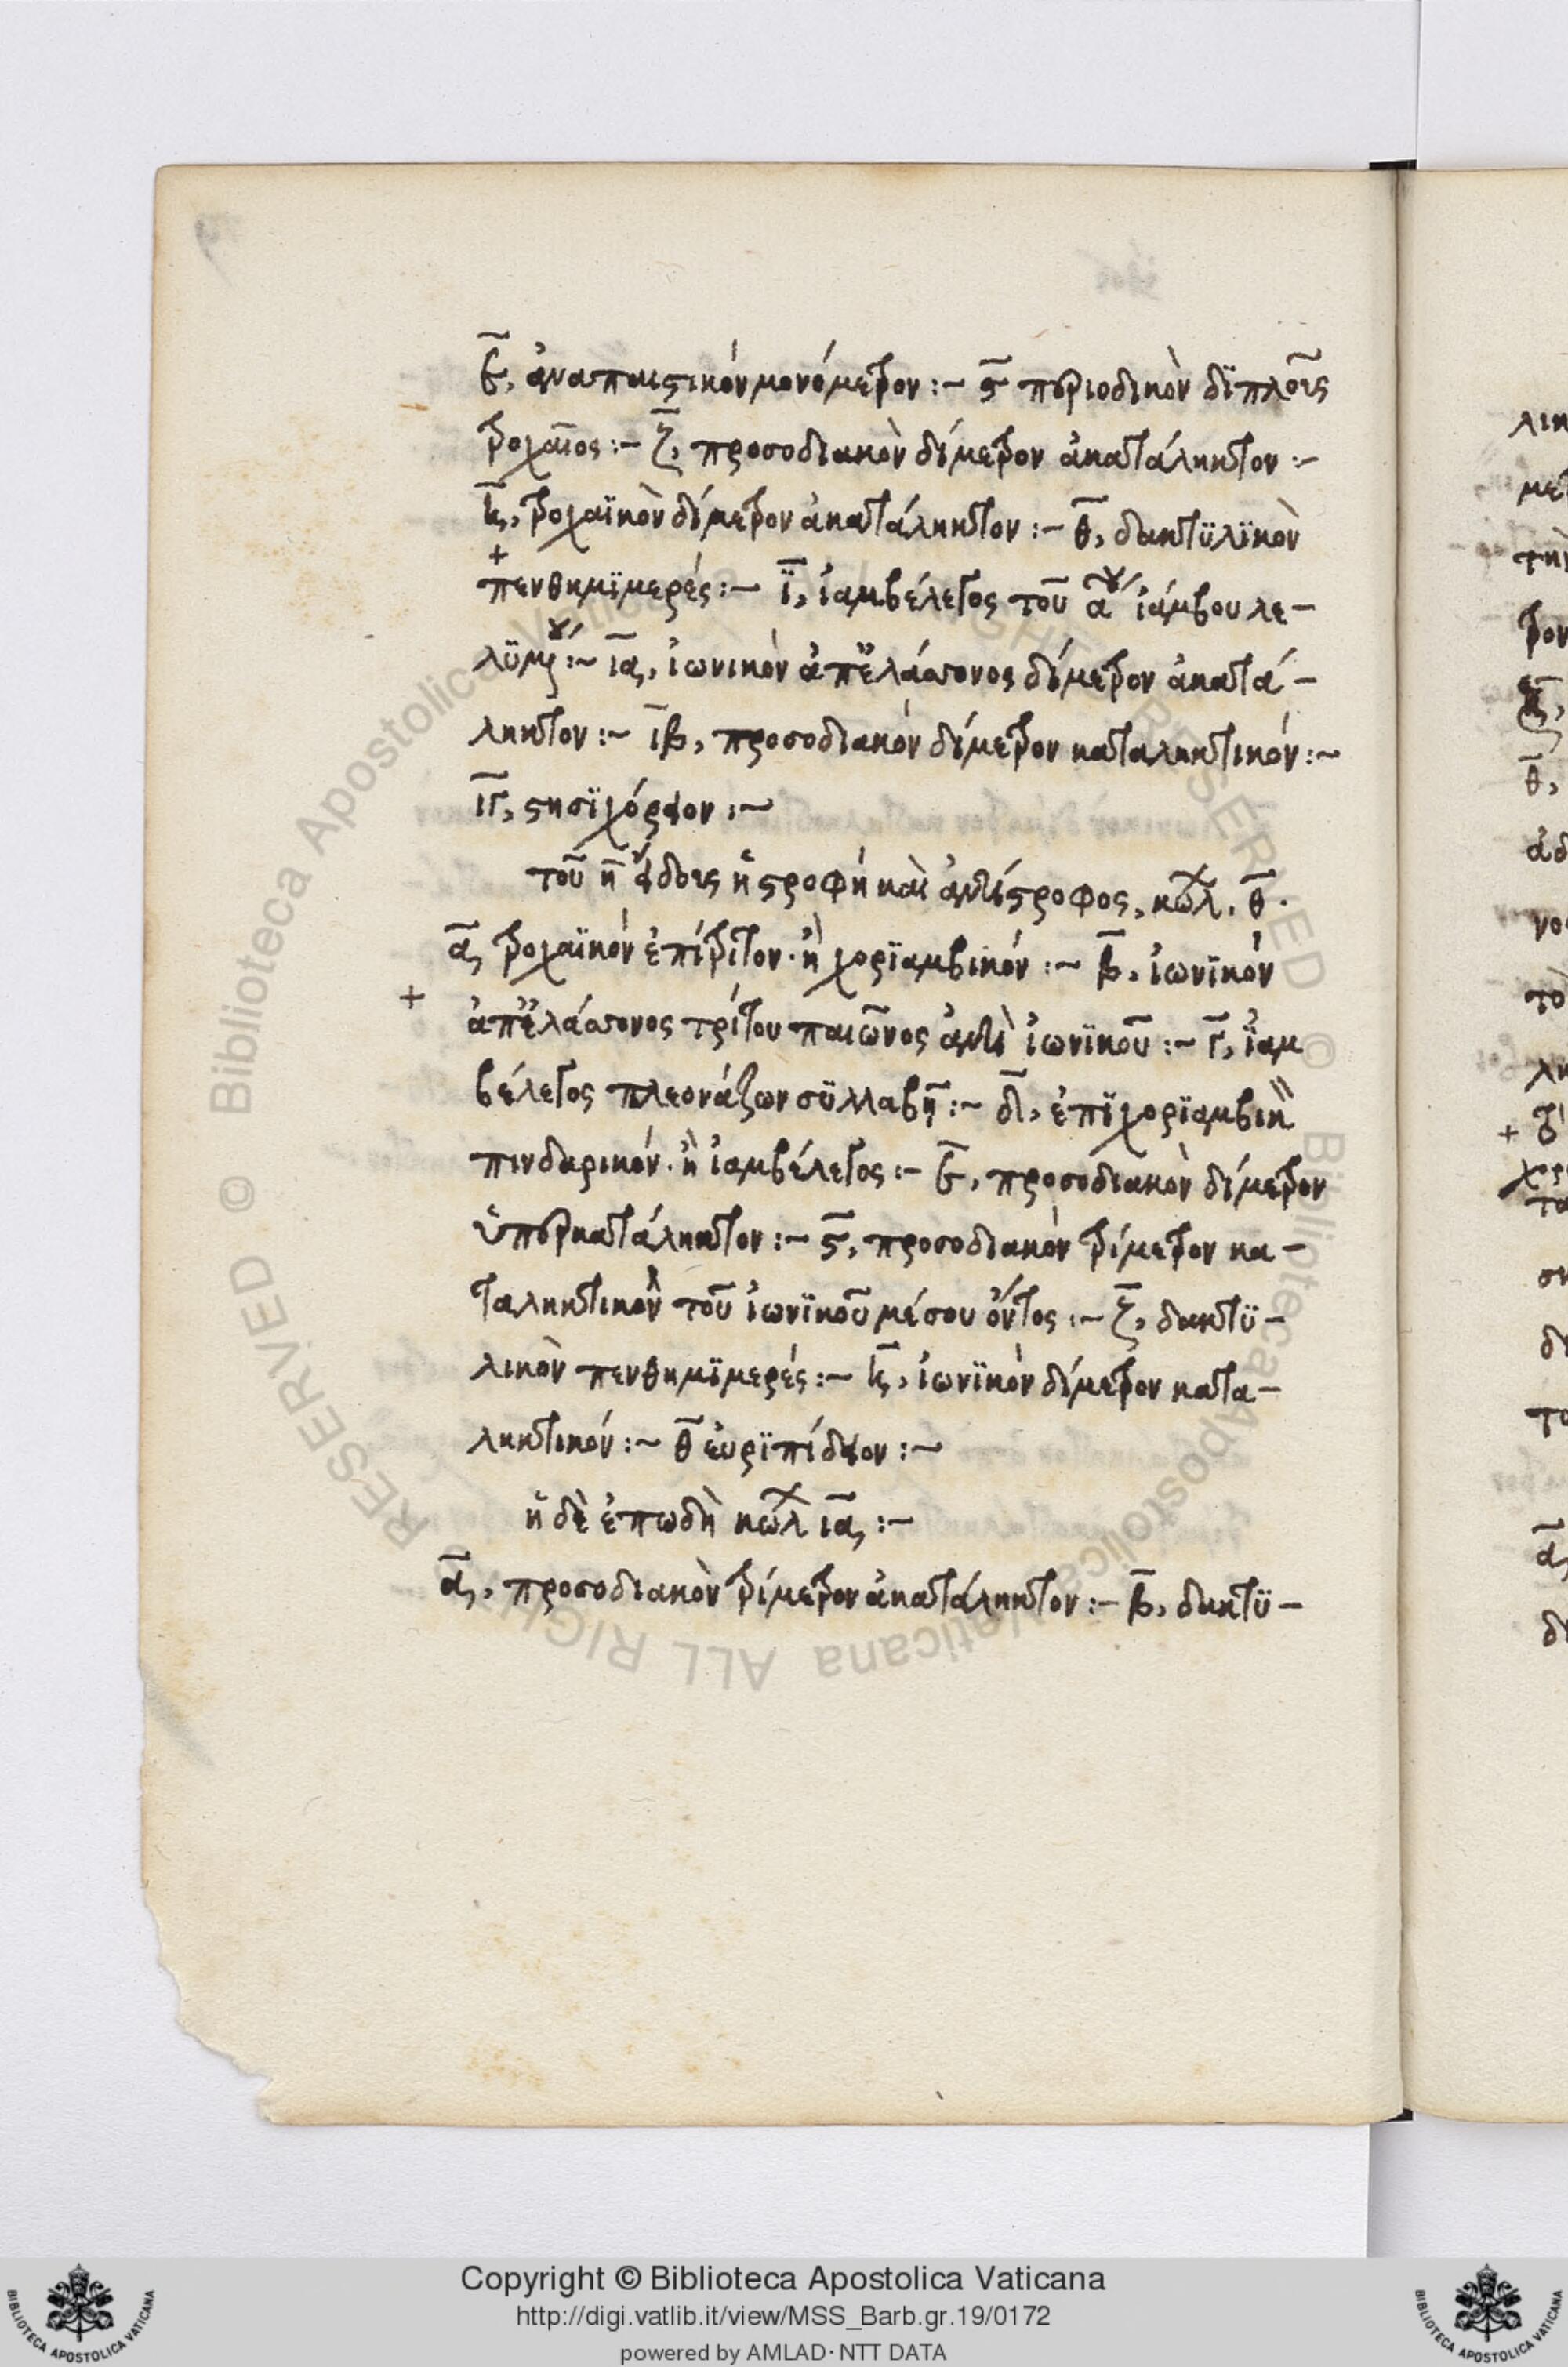 ε̄, ἀναπαιστικόν μονόμετρον :- ϛ̄ περιοδικὸν δϊπλοῦς
τροχαῖος :- ζ̄, προσοδιακὸν δίμετρον ἀκατάληκτον :-
η̄, τροχαϊκὸν δίμετρον ἀκατάληκτον :- θ̄, δακτϋλϊκὸν
+
πενθημϊμερές :- ϊ̄, ἰαμβέλεγος τοῦ ᾱου ἰάμβου λε-
λϋμένου :- ῑᾱ, ἰωνικὸν ἀπ' ἐλάσσονος δίμετρον ἀκατά-
ληκτον :- ῑβ, προσοδιακὸν δίμετρον καταληκτικόν :-
ῑγ̄, στησϊχόρειον :-
τοῦ η̄ εἴδους ἡ στροφὴ καὶ ἀντίστροφος, κώλ. θ̄.
ᾱ, τροχαϊκὸν ἐπίτριτον. ἢ χορϊαμβικόν :- β̄, ἰωνϊκὸν
+
ἀπ' ἐλάσσονος τρίτου παιῶνος ἀντὶ ἰωνϊκοῦ :- γ̄, ἰαμ
βέλεγος πλεονάζων σϋλλαβῇ :- δ̄, ἐπϊχορϊαμβικὸν
πινδαρικόν. ἢ ἰαμβέλεγος :- ε̄, προσοδιακὸν δίμετρον
ὑπερκατάληκτον :- ϛ̄, προσοδιακὸν τρίμετρον κα-
ταληκτικὸν τοῦ ἰωνϊκοῦ μέσου ὄντος :- ζ̄, δακτϋ-
λικὸν πενθημϊμερές :- η̄, ἰωνϊκὸν δίμετρον κατα-
ληκτικόν :- θ̄ εὐρϊπίδειον :-
ἡ δὲ ἐπωδὴ κώλ ῑᾱ, :-
ᾱ, προσοδιακὸν τρίμετρον ἀκατάληκτον :- β̄, δακτϋ-
Copyright © Biblioteca Apostolica Vaticana
http://digi.vatlib.it/view/MSS_Barb.gr.19/0172
powered by AMLAD·NTT DATA